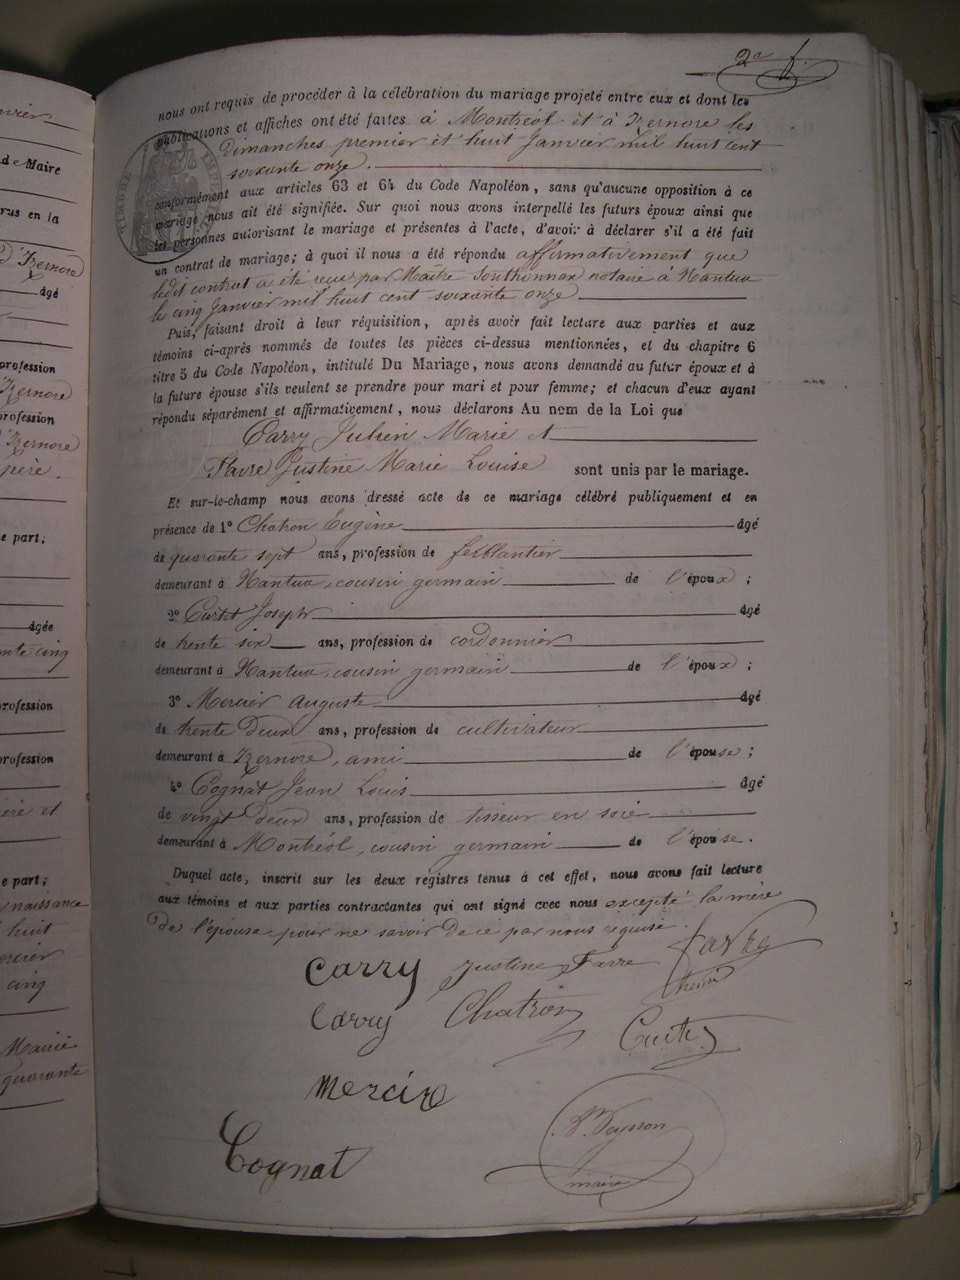 2a f.
nous ont requis de procéder à la célébration du mariage projeté entre eux et dont les
publications et affiches ont été faites à Montréal et à Izernore les
Dimanches premier et huit Janvier mil huit cent
soixante onze.
conformément aux articles 63 et 64 du Code Napoléon, sans qu'aucune opposition à ce
mariage nous ait été signifiée. Sur quoi nous avons interpellé les futurs époux ainsi que
les personnes autorisant le mariage et présentes à l'acte, d'avoir à déclarer s'il a été fait
un contrat de mariage; à quoi il nous a été répondu affirmativement que
ledit contrat a été reçu par Maître Jouthonnax notaire à Nantua
le cinq Janvier mil huit cent soixante onze
Puis, faisant droit à leur réquisition, après avoir fait lecture aux parties et aux
témoins ci-après nommés de toutes les pièces ci-dessus mentionnées, et du chapitre 6
titre 5 du Code Napoléon, intitulé Du Mariage, nous avons demandé au futur époux et à
la future épouse s'ils veulent se prendre pour mari et pour femme; et chacun d'eux ayant
répondu séparément et affirmativement, nous déclarons Au nom de la Loi que
Carry Julien Marie et
Favre Justine Marie Louise sont unis par le mariage.
Et sur-le-champ nous avons dressé acte de ce mariage célébré publiquement et en
présence de 1º Chatron Eugène âgé
de quarante sept ans, profession de ferblantier
demeurant à Nantua, cousin germain de l'époux;
2º Curtet Joseph âgé
de trente six ans, profession de cordonnier
demeurant à Nantua, cousin germain de l'époux;
3º Mercier Auguste âgé
de trente deux ans, profession de cultivateur
demeurant à Izernore, ami de l'épouse;
4º Cognat Jean Louis âgé
de vingt deux ans, profession de tisseur en soie
demeurant à Montréal, cousin germain de l'épouse.
Duquel acte, inscrit sur les deux régistres tenus à cet effet, nous avons fait lecture
aux témoins et aux parties contractantes qui ont signé avec nous excepté la mère
de l'épouse pour ne savoir de ce par nous requise.
Carry Justine Favre favre
Carry Chatron Curtet
Mercier
Cognat
maire